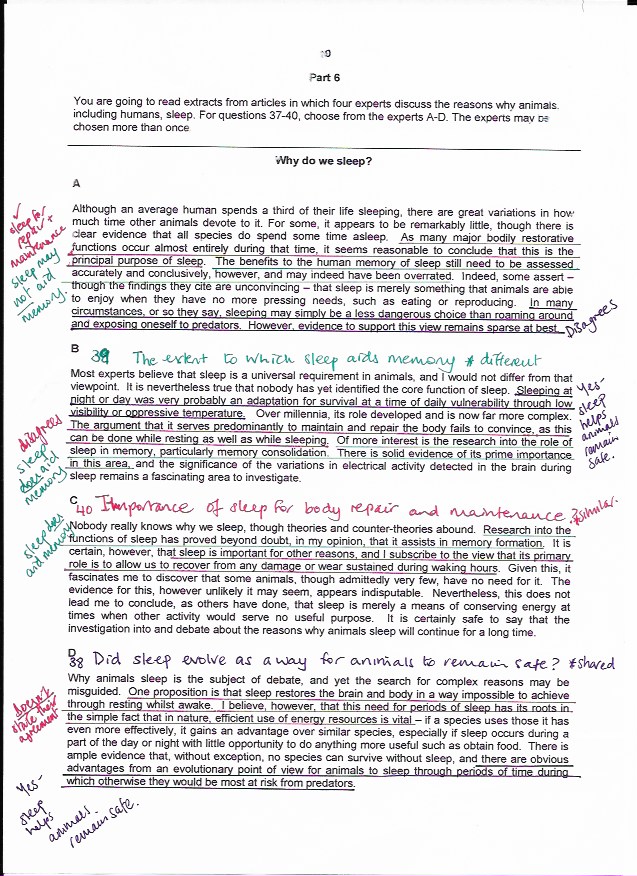 Part 6
You are going to read extracts from articles in which four experts discuss the reasons why animals,
including humans, sleep. For questions 37-40, choose from the experts A-D. The experts may be
chosen more than once
Why do we sleep?
A
Although an average human spends a third of their life sleeping, there are great variations in how
much time other animals devote to it. For some, it appears to be remarkably little, though there is
clear evidence that all species do spend some time asleep. As many major bodily restorative
functions occur almost entirely during that time, it seems reasonable to conclude that this is the
principal purpose of sleep. The benefits to the human memory of sleep still need to be assessed
accurately and conclusively, however, and may indeed have been overrated. Indeed, some assert –
though the findings they cite are unconvincing – that sleep is merely something that animals are able
to enjoy when they have no more pressing needs, such as eating or reproducing. In many
circumstances, or so they say, sleeping may simply be a less dangerous choice than roaming around
and exposing oneself to predators. However, evidence to support this view remains sparse at best.
✓
sleep for
repair +
maintenance
sleep may
not aid
memory.
Disagrees
B
39 The extent to which sleep aids memory * different
Most experts believe that sleep is a universal requirement in animals, and I would not differ from that
viewpoint. It is nevertheless true that nobody has yet identified the core function of sleep. Sleeping at
night or day was very probably an adaptation for survival at a time of daily vulnerability through low
visibility or oppressive temperature. Over millennia, its role developed and is now far more complex.
The argument that it serves predominantly to maintain and repair the body fails to convince, as this
can be done while resting as well as while sleeping. Of more interest is the research into the role of
sleep in memory, particularly memory consolidation. There is solid evidence of its prime importance
in this area, and the significance of the variations in electrical activity detected in the brain during
sleep remains a fascinating area to investigate.
disagrees
sleep
does aid
memory
Yes-
sleep
helps
animals
remain
safe.
C
40 Importance of sleep for body repair and maintenance? *similar.
Nobody really knows why we sleep, though theories and counter-theories abound. Research into the
functions of sleep has proved beyond doubt, in my opinion, that it assists in memory formation. It is
certain, however, that sleep is important for other reasons, and I subscribe to the view that its primary
role is to allow us to recover from any damage or wear sustained during waking hours. Given this, it
fascinates me to discover that some animals, though admittedly very few, have no need for it. The
evidence for this, however unlikely it may seem, appears indisputable. Nevertheless, this does not
lead me to conclude, as others have done, that sleep is merely a means of conserving energy at
times when other activity would serve no useful purpose. It is certainly safe to say that the
investigation into and debate about the reasons why animals sleep will continue for a long time.
Sleep does
aid memory
D
38 Did sleep evolve as a way for animals to remain safe? *shared
Why animals sleep is the subject of debate, and yet the search for complex reasons may be
misguided. One proposition is that sleep restores the brain and body in a way impossible to achieve
through resting whilst awake. I believe, however, that this need for periods of sleep has its roots in
the simple fact that in nature, efficient use of energy resources is vital – if a species uses those it has
even more effectively, it gains an advantage over similar species, especially if sleep occurs during a
part of the day or night with little opportunity to do anything more useful such as obtain food. There is
ample evidence that, without exception, no species can survive without sleep, and there are obvious
advantages from an evolutionary point of view for animals to sleep through periods of time during
which otherwise they would be most at risk from predators.
Doesn't
state their
agreement
Yes-
sleep
helps
animals.
remain safe.